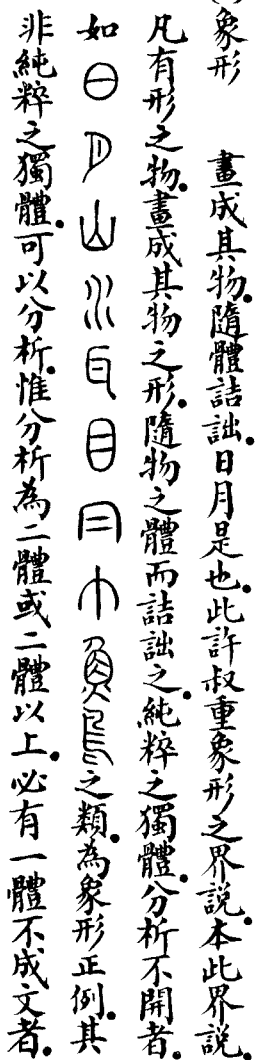 象形　畫成其物.隨體詰詘.日月是也.此許叔重象形之界說.本此界說.
凡有形之物.畫成其物之形.隨物之體而詰詘之.純粹之獨體.分析不開者.
如日月山水目魚鳥之類.為象形正例.其
非純粹之獨體.可以分析.惟分析為二體或二體以上.必有一體不成文者.